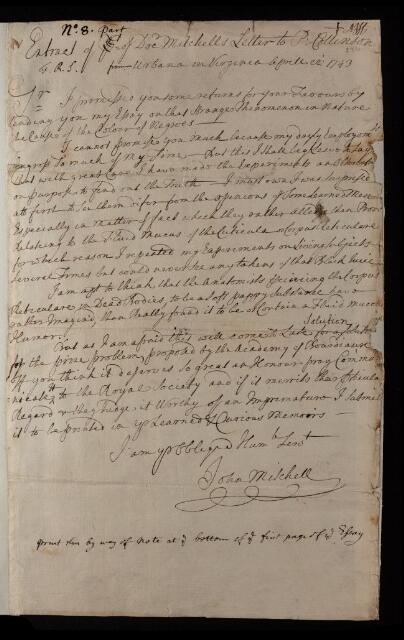 No. 8. Part
Extract of Doc.r Mitchell's Letter to P. Collinson
F.R.S. from Urbana in Virginia Aprile 12 1743
Sr I promised you some returns for your favours by
sending you my Essay on that strange Phenomenon in Nature
the Cause of the Colour of Negroes
I cannot promise you much because my dayly Employments
ingross so much of my Time – But this I shall beg leave to say
that with great Care I have made the Experiments
on purpose to find out the Truth – I must own I was surprised
at first to see them differ from the opinions of some learned Men
Especially in matter of fact when they rather
Relating to the Fluid Mucus of the Cuticula or Corpus Reticulare
for which reason I repeated my Experiments on Living Subjects
severel Times but could never see any tokens of that Black Juice
I am apt to think that the Anatomists
Reticulare in Dead Bodies, to be a soft pappy Substance have
rather Imagined than Really found it to be or Contain a Fluid mucous
Humor.
But as I am afraid this will come too Late for a Solution
of the prize problem proposed by the Academy of Bourdeaux
If you think it deserves so great an Honour pray Commu
nicate it to the Royal Society and if it merits their
Regard & they Judge it Worthy of an Impremature I submit
it to be printed in ye Learned & Curious Memoirs –
I am yr Obliged Humb. Servt
John Mitchell
print this by way of Note at ye bottom of ye first page of ye Essay